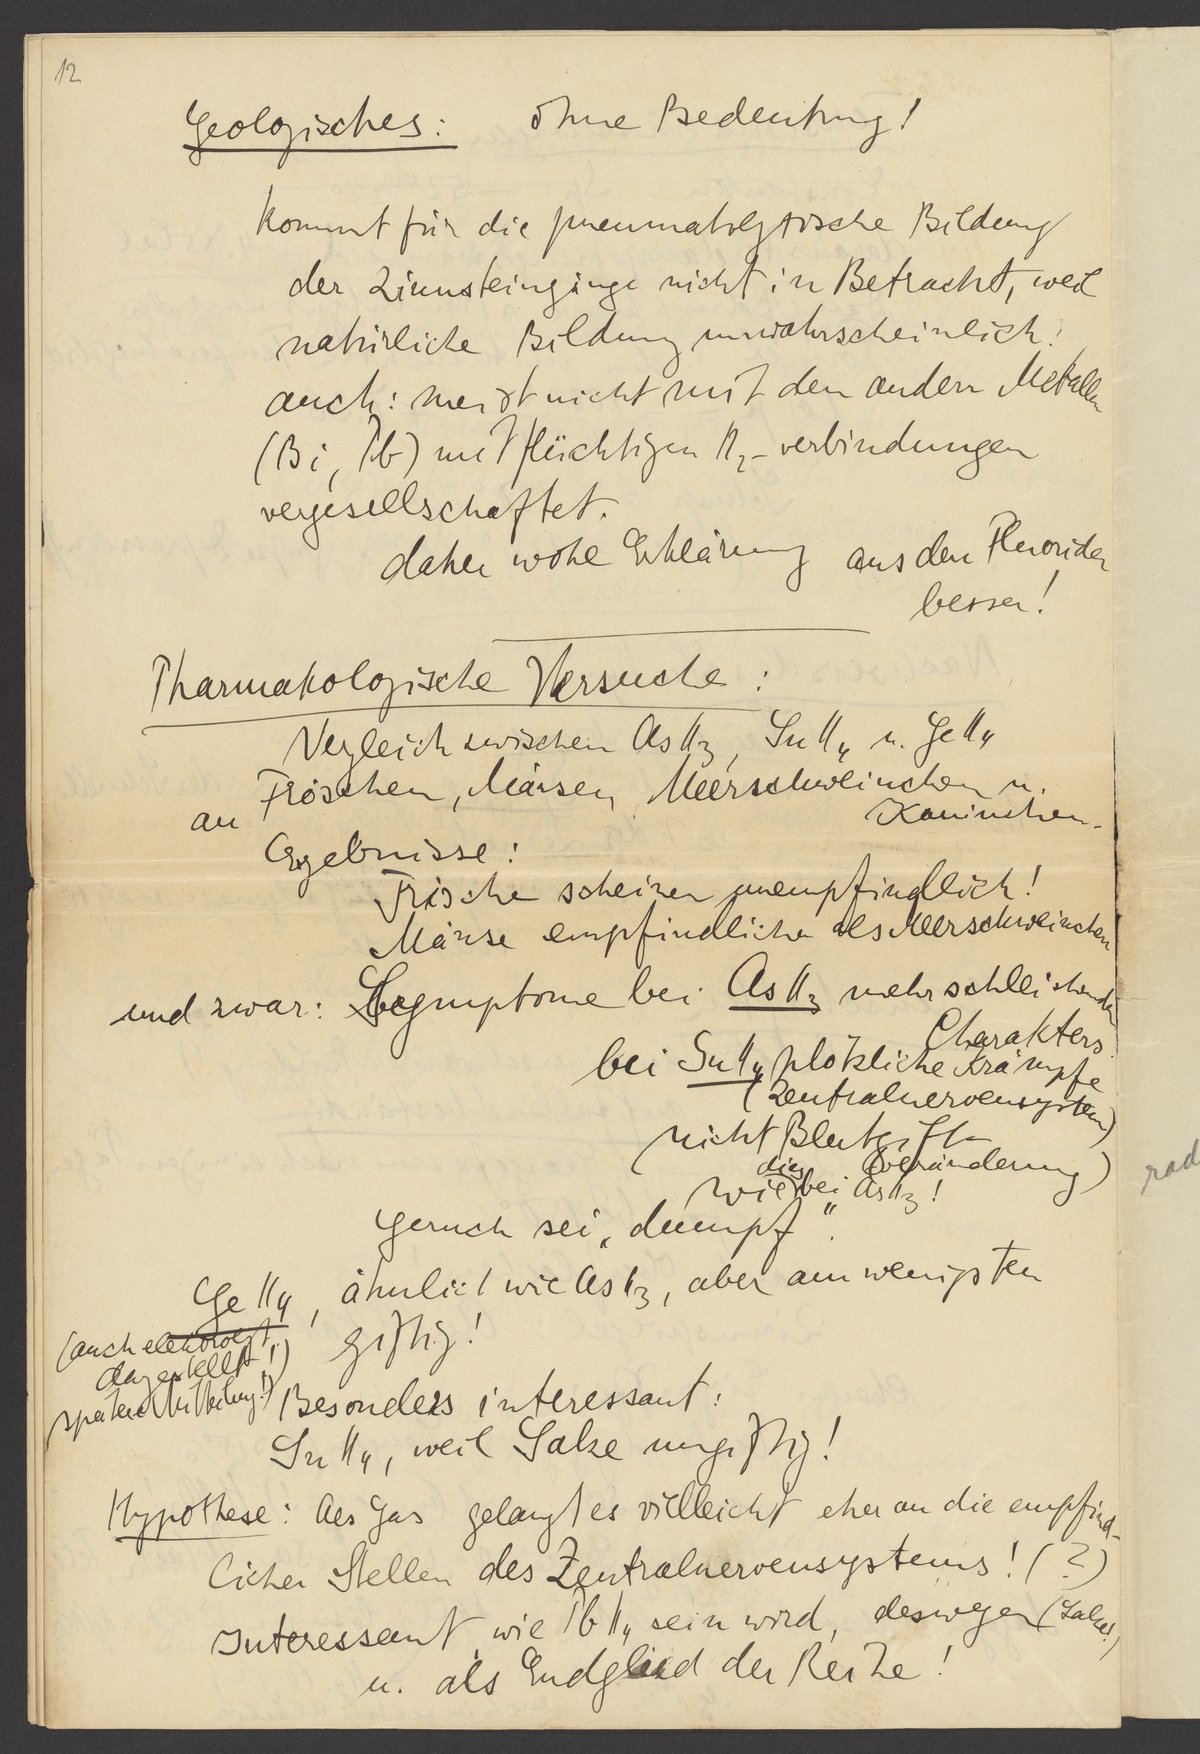 12
Geologisches: ohne Bedeutung!
kommt für die pneumatolytische Bildung
der Zinnsteingänge nicht in Betracht, weil
natürliche Bildung unwahrscheinlich!
auch: meist nicht mit den andern Metallen
(Bi, Pb) mit flüchtigen H2-verbindungen
vergesellschaftet.
daher wohl Erklärung aus den Fluoriden
besser!
Pharmakologische Versuche:
Vergleich zwischen AsH3, SnH4 u. GeH4
an Fröschen, Mäusen, Meerschweinchen u.
Kaninchen.
Ergebnisse:
Frösche scheinen unempfindlich!
Mäuse empfindlicher als Meerschweinchen
und zwar: Symptome bei AsH3 mehr schleichenden
Charakters.
bei SnH4 plötzliche Krämpfe
(Zentralnervensystem)
nicht Blutgift
(veränderung)
wie dies bei AsH3!
Geruch sei „dumpf“.
GeH4, ähnlich wie AsH3, aber am wenigsten
giftig!
(auch elektrolyt.
dargestellt!)
spätere Mitteilung!)
Besonders interessant:
SnH4, weil Salze ungiftig!
Hypothese: Als Gas gelangt es vielleicht eher an die empfind-
lichen Stellen des Zentralnervensystems! (?)
Interessant wie PbH4 sein wird, deswegen (Salze!)
u. als Endglied der Reihe!
rad